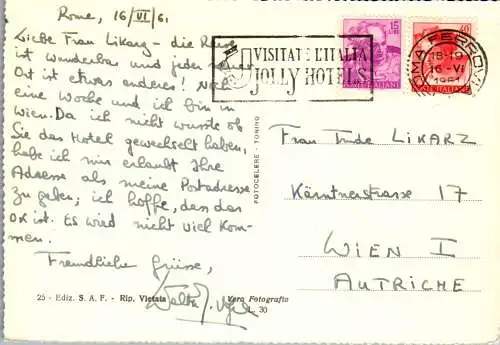 Rome, 16/VI/61
Liebe Frau Likarz - die Reise
ist wunderbar und jeder neue
Ort ist etwas anderes! Noch
eine Woche und ich bin in
Wien. Da ich nicht wusste ob
Sie das Hotel gewechselt haben,
habe ich mir erlaubt Ihre
Adresse als meine Postadresse
zu geben; ich hoffe, dass das
OK ist. Es wird nicht viel kom-
men.
Freundliche Grüsse,
Walter
25 - Ediz. S. A. F. - Rip. Vietata
Vera Fotografia
30
FOTOCELERE - TORINO
VISITATE L'ITALIA
JOLLY HOTELS
15
40
POSTE ITALIANE
ROMA FERROVIA
18-19
16-VI
1961
Frau Trude LIKARZ
Kärntnerstrasse 17
WIEN I
AUTRICHE